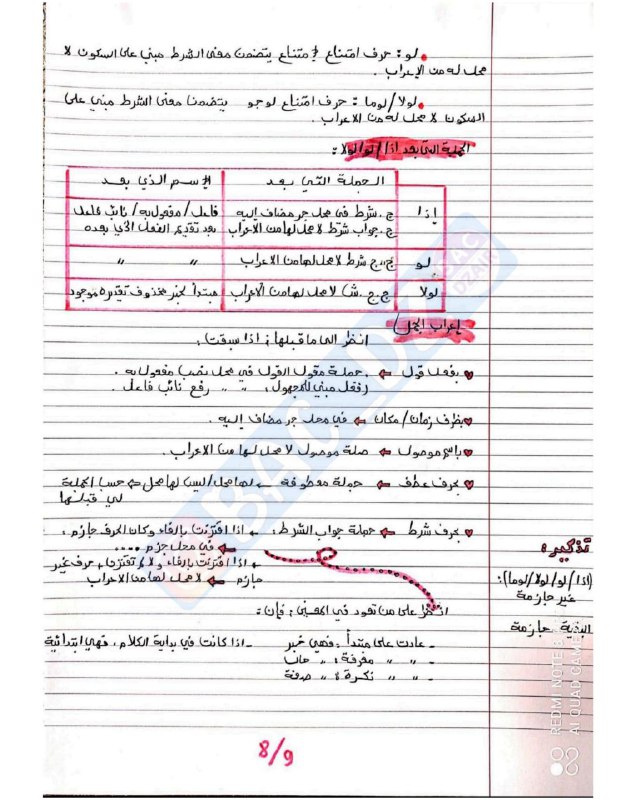 • لو: حرف امتناع لامتناع يتضمن معنى الشرط مبني على السكون لا
محل له من الإعراب.
• لولا/لوما: حرف امتناع لوجو يتضمن معنى الشرط مبني على
السكون لا محل له من الاعراب.
الجملة التي بعد اذا/لو/لولا:
الجملة التي بعد
الإسم الذي بعد
إذا
ج. شرط في محل جر مضاف إليه
ج. جواب شرط لا محل لها من الاعراب
فاعل/مفعول به/نائب فاعل
بعد تقديم الفعل الذي بعده
لو
ج، ج شرط لا محل لها من الاعراب
〃 〃
لولا
ج.ج. ش لا محل لها من الأعراب
مبتدأ لخبر محذوف تقديره موجود
إعراب الجمل
انظر الى ما قبلها: اذا سبقت:
♥ بفعل قول ⇐ جملة مقول القول في محل نصب مفعول به.
(فعل مبني للمجهول: 〃 〃 رفع نائب فاعل.
♥ بظرف زمان/مكان ⇐ في محل جر مضاف إليه.
♥ باسم موصول ⇐ صلة موصول لا محل لها من الاعراب.
♥ بحرف عطف ⇐ جملة معطوفة ← لها محل/ليس لها محل ⇐ حسب الجملة
لي قبلها
♥ بحرف شرط ⇐ جملة جواب الشرط: ← اذا اقترنت بالفاء وكان الحرف جازم:
⇐ في محل جزم....
← اذا اقترنت بالفاء ولا لم تقترن + حرف غير
جازم ⇐ لا محل لها من الاعراب
تذكير:
(اذا/لو/لولا/لوما):
غير جازمة
البقية جازمة
انظر على من تعود في المعنى: فإن:
- عادت على مبتدأ: فهي خبر
- 〃 〃 معرفة: 〃 حال
- 〃 〃 نكرة: 〃 صفة
- اذا كانت في بداية الكلام، فهي ابتدائية
8/9
BAC DZ
BAC
DZAIR
REDMI NOTE 8
AI QUAD CAMERA